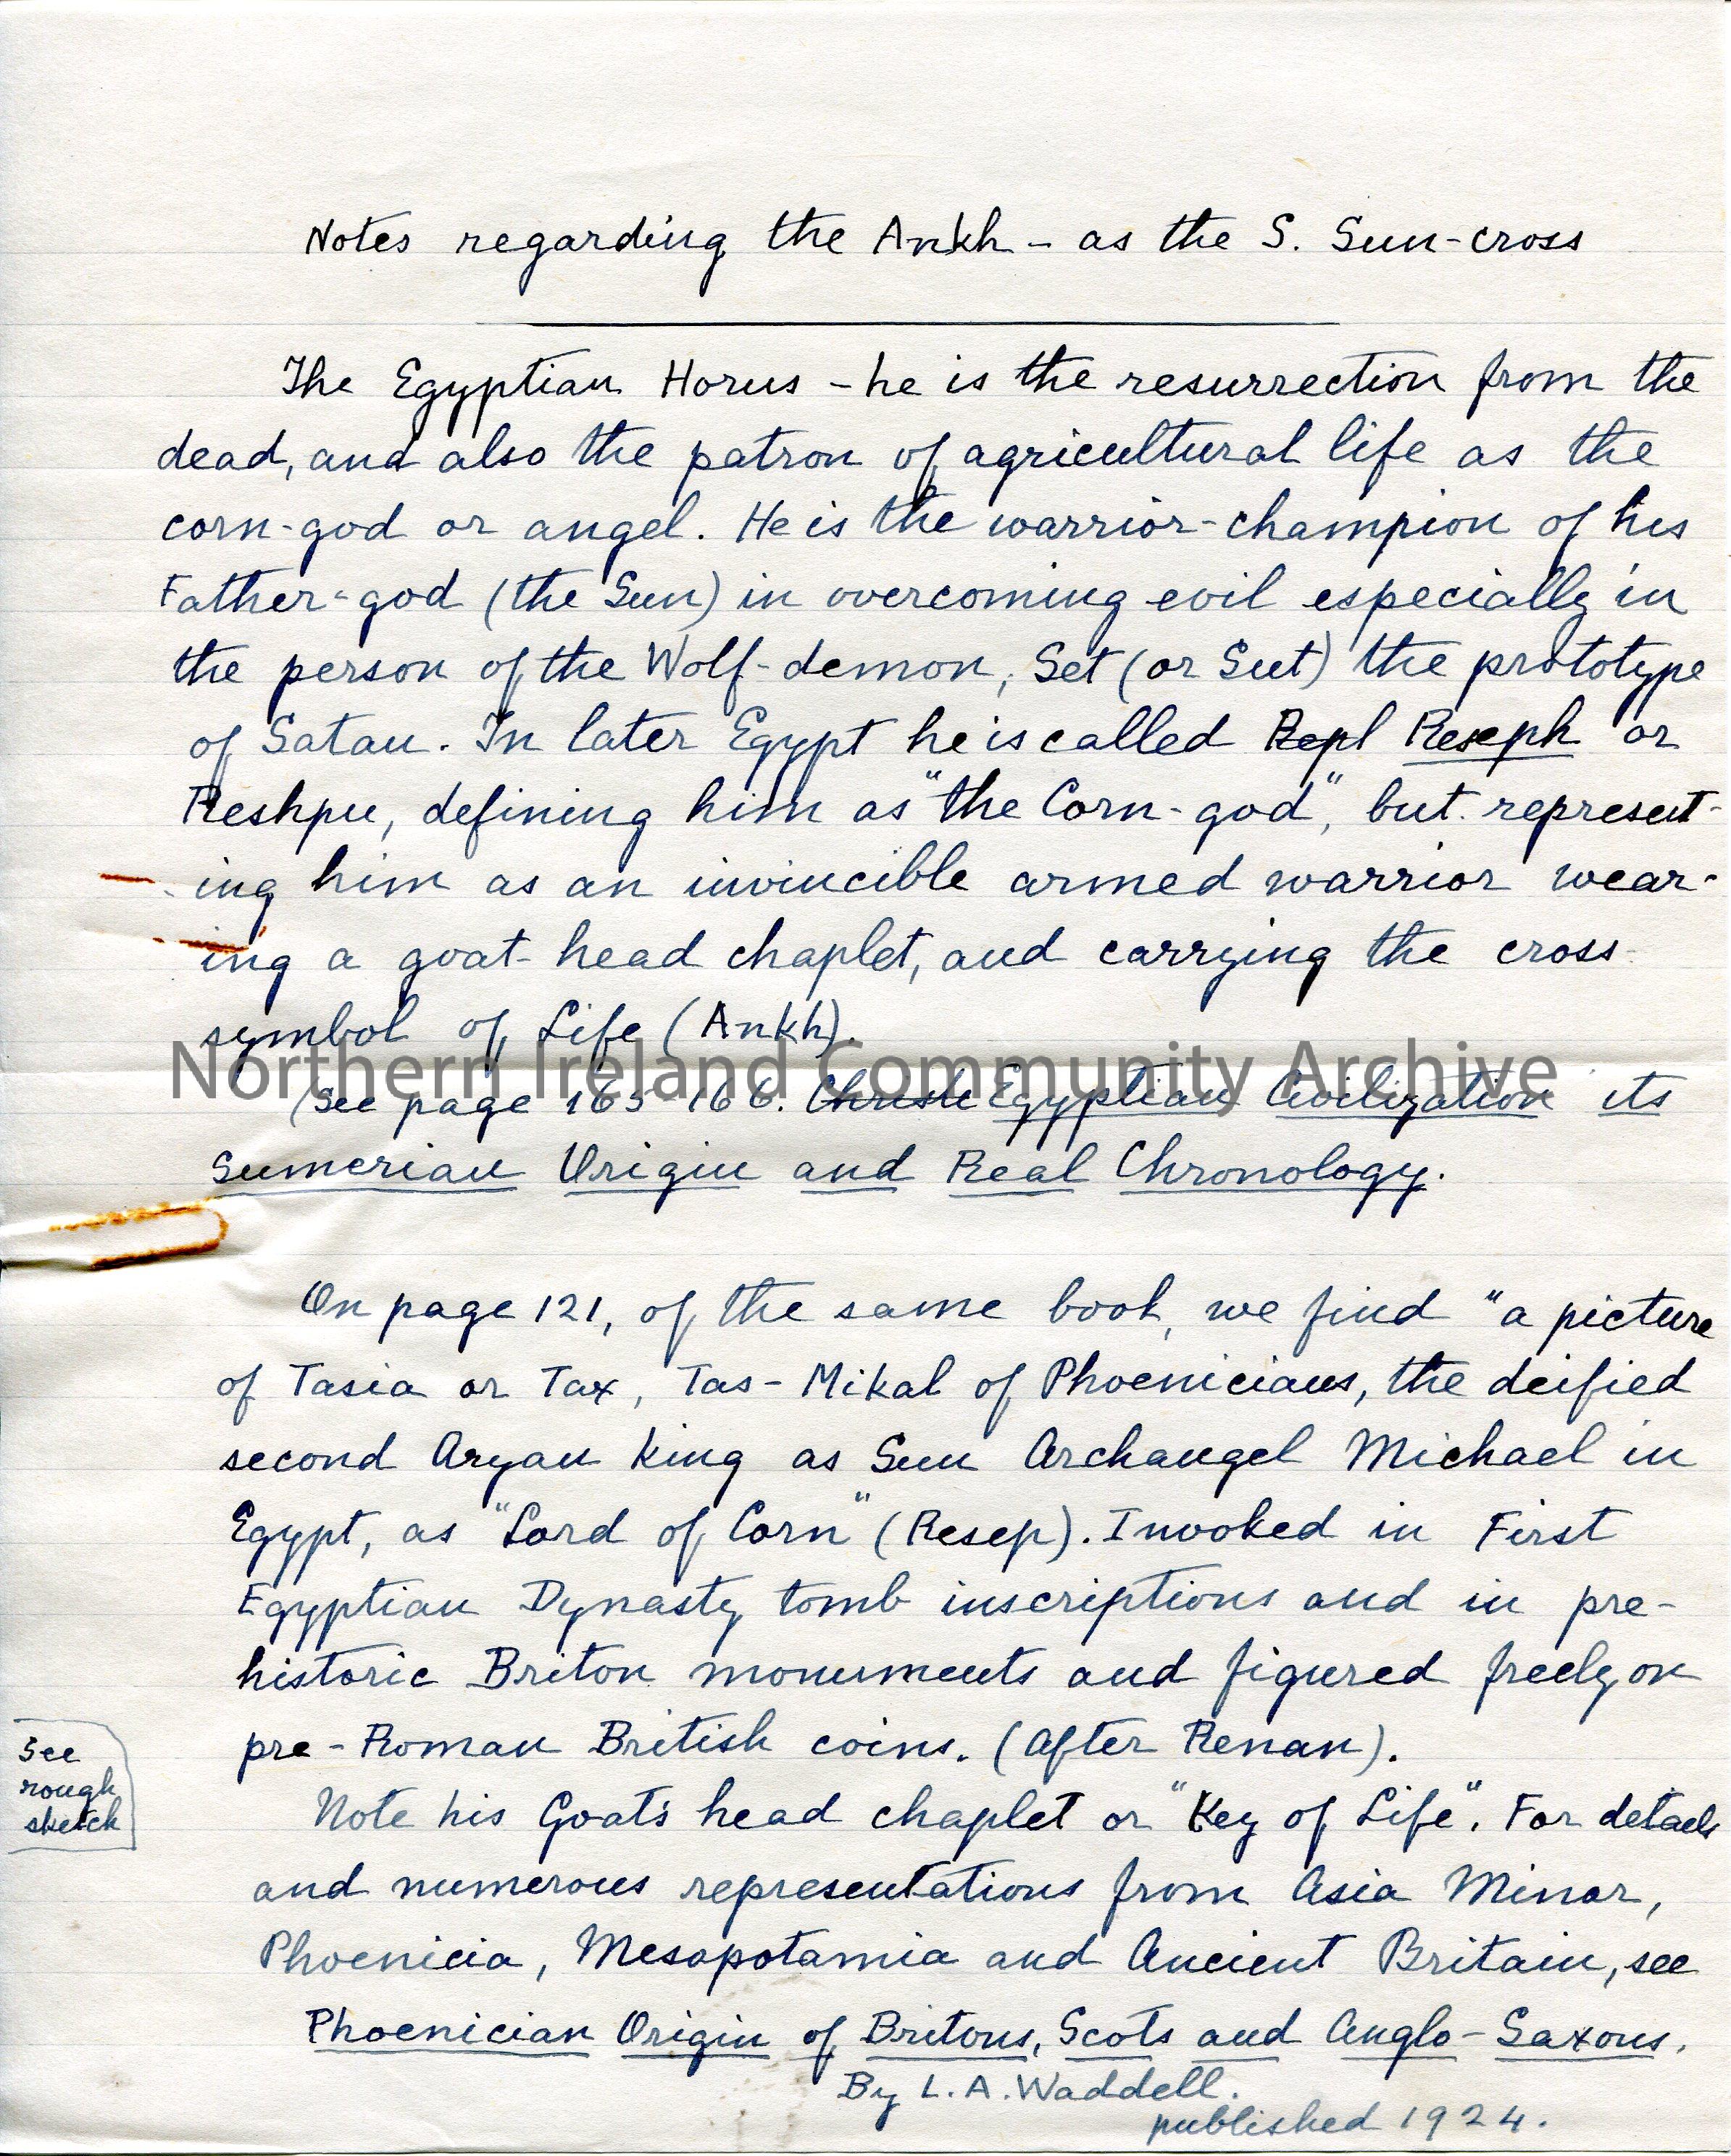 Notes regarding the Ankh - as the S. Sun-cross
The Egyptian Horus - he is the resurrection from the
dead, and also the patron of agricultural life as the
corn-god or angel. He is the warrior-champion of his
Father-god (the Sun) in overcoming evil especially in
the person of the Wolf-demon, Set (or Sut) the prototype
of Satan. In later Egypt he is called Repl Reseph or
Reshpu, defining him as "the Corn-god", but represent-
ing him as an invincible armed warrior wear-
ing a goat-head chaplet, and carrying the cross-
symbol of Life (Ankh).
Northern Ireland Community Archive
(See page 165 166. Egyptian Civilization its
Sumerian Origin and Real Chronology.
On page 121, of the same book, we find "a picture
of Tasia or Tax, Tas-Mikal of Phoenicians, the deified
second Aryan King as Sun Archangel Michael in
Egypt, as "Lord of Corn" (Resep). Invoked in First
Egyptian Dynasty tomb inscriptions and in pre-
historic Briton monuments and figured freely on
pre-Roman British coins. (After Renan).
See
rough
sketch
Note his Goat's head chaplet or "Key of Life". For details
and numerous representations from Asia Minor,
Phoenicia, Mesopotamia and Ancient Britain, see
Phoenician Origin of Britons, Scots and Anglo-Saxons.
By L.A. Waddell.
published 1924.